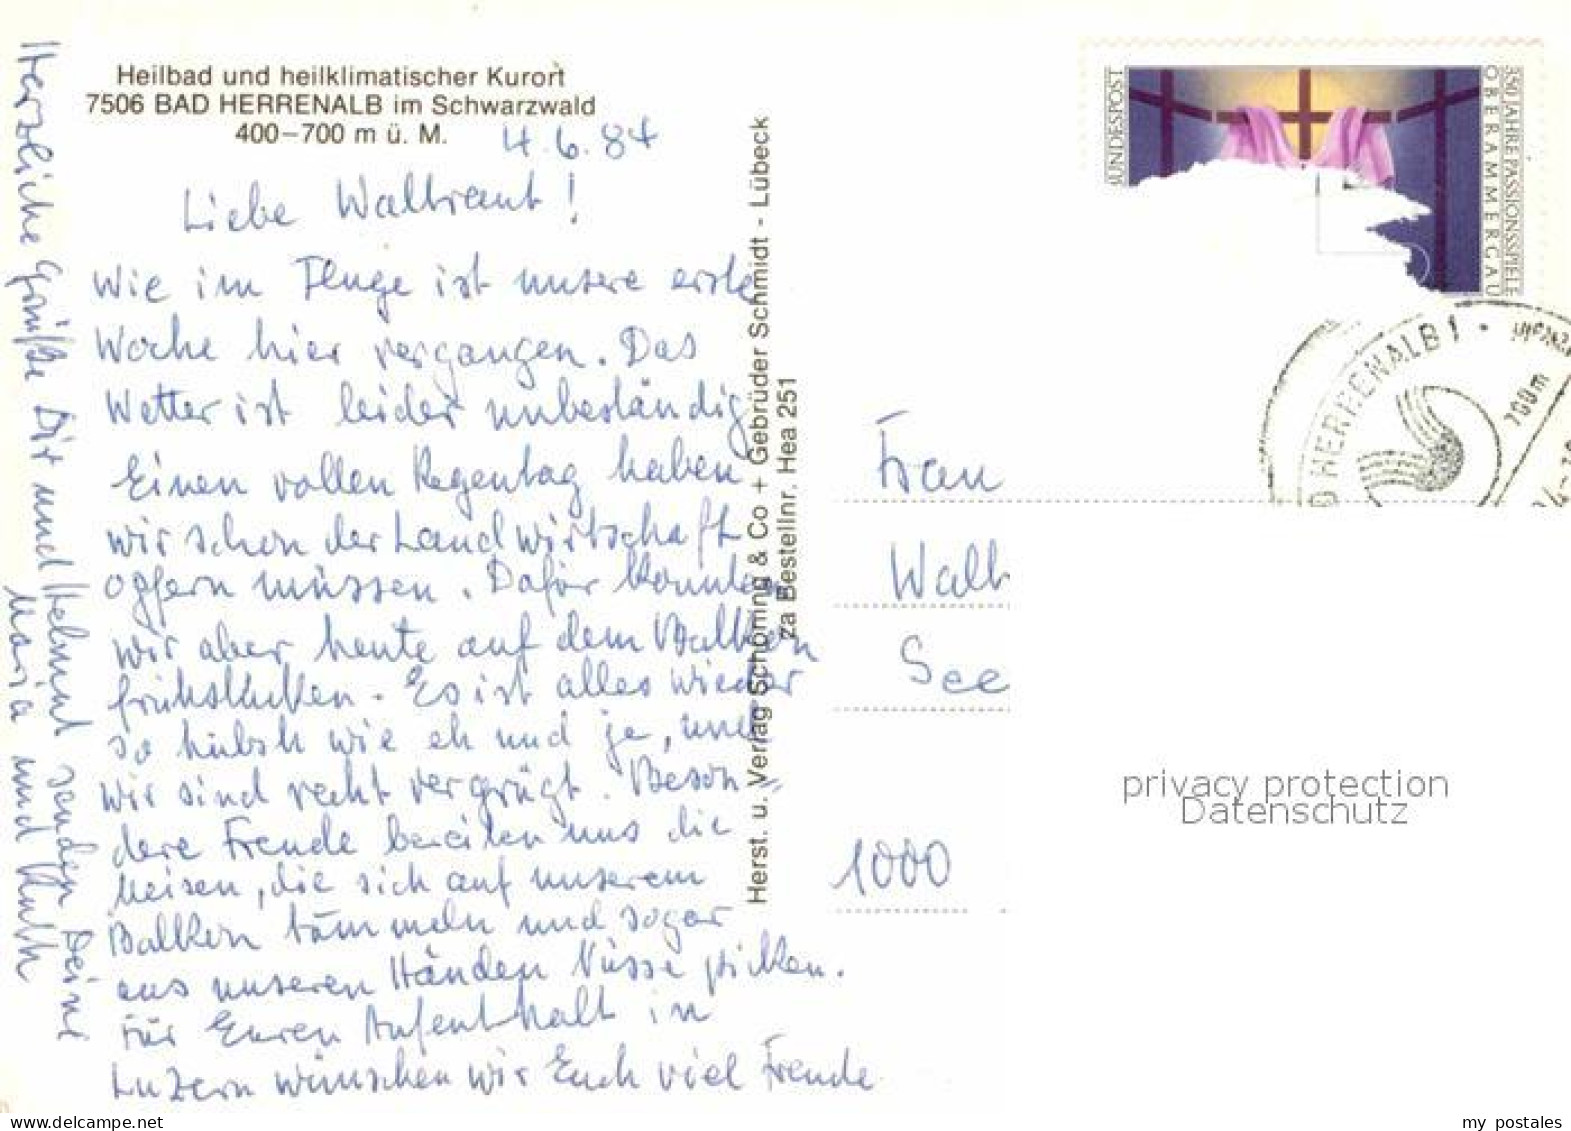 Heilbad und heilklimatischer Kurort
7506 BAD HERRENALB im Schwarzwald
400–700 m ü. M.
4.6.84
Liebe Waltraut!
Wie im Fluge ist unsere erste
Woche hier vergangen. Das
Wetter ist leider unbeständig
Einen vollen Regentag haben
wir schon der Landwirtschaft
opfern müssen. Dafür konnten
wir aber heute auf dem Balkon
frühstücken. Es ist alles wieder
so hübsch wie eh und je, und
wir sind recht vergnügt. Beson=
dere Freude bereiten uns die
Meisen, die sich auf unserem
Balkon tümmeln und sogar
aus unseren Händen Nüsse picken.
Für Euren Aufenthalt in
Luzern wünschen wir Euch viel Freude
Herzliche Grüße Dir und Helmut senden Deine
Maria und
Herst. u. Verlag Schöning & Co + Gebrüder Schmidt - Lübeck
za Bestellnr. Hea 251
BUNDESPOST
350 JAHRE PASSIONSSPIELE
OBERAMMERGAU
HERRENALB 1
700m
Frau
Walt
See
1000
privacy protection
Datenschutz
delcampe.net
my_postales